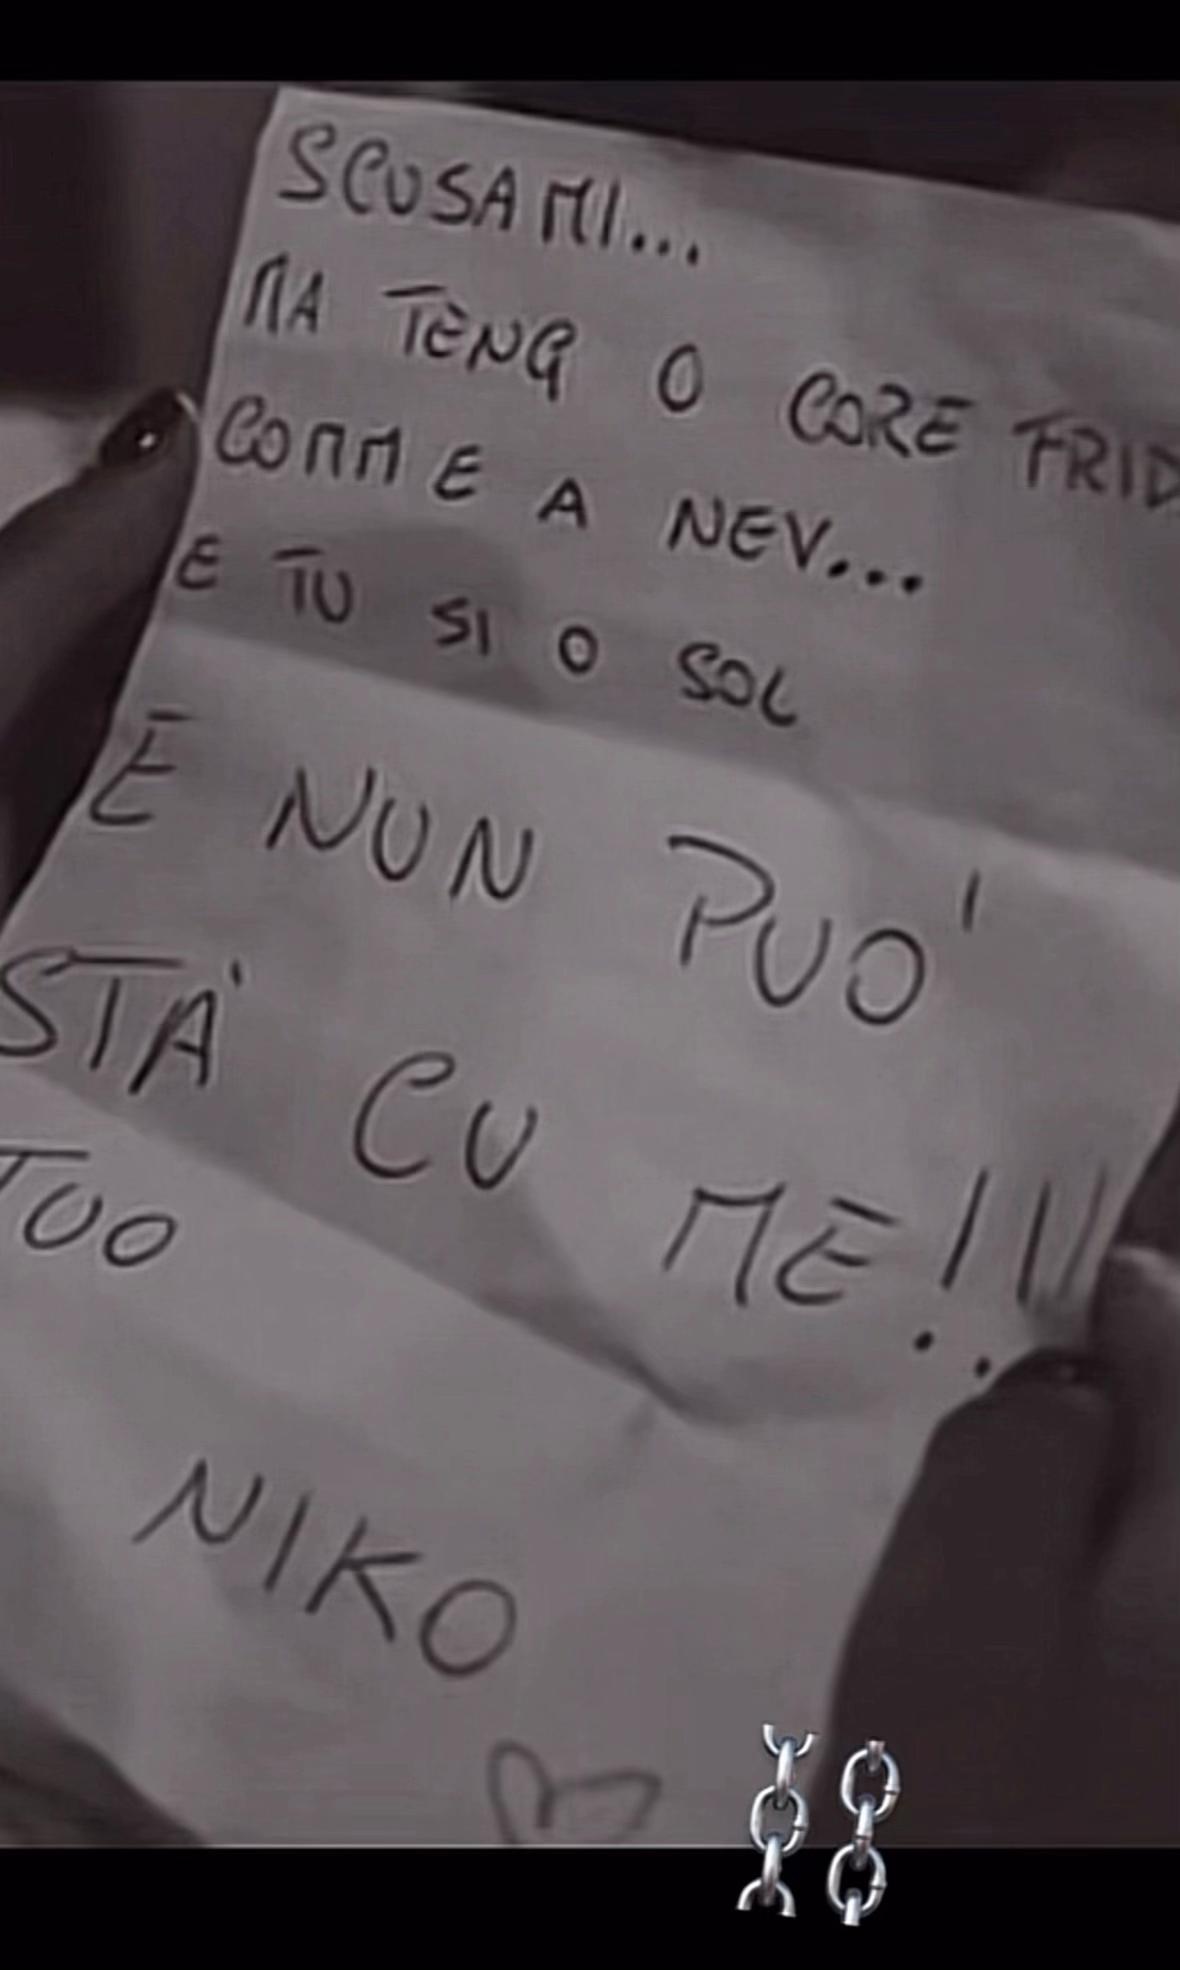 SCUSAMI...
MA TENG O CORE FRID
COMM E A NEV...
E TU SI O SOL
E NUN PUO'
STA' CU ME!!!
TUO
NIKO